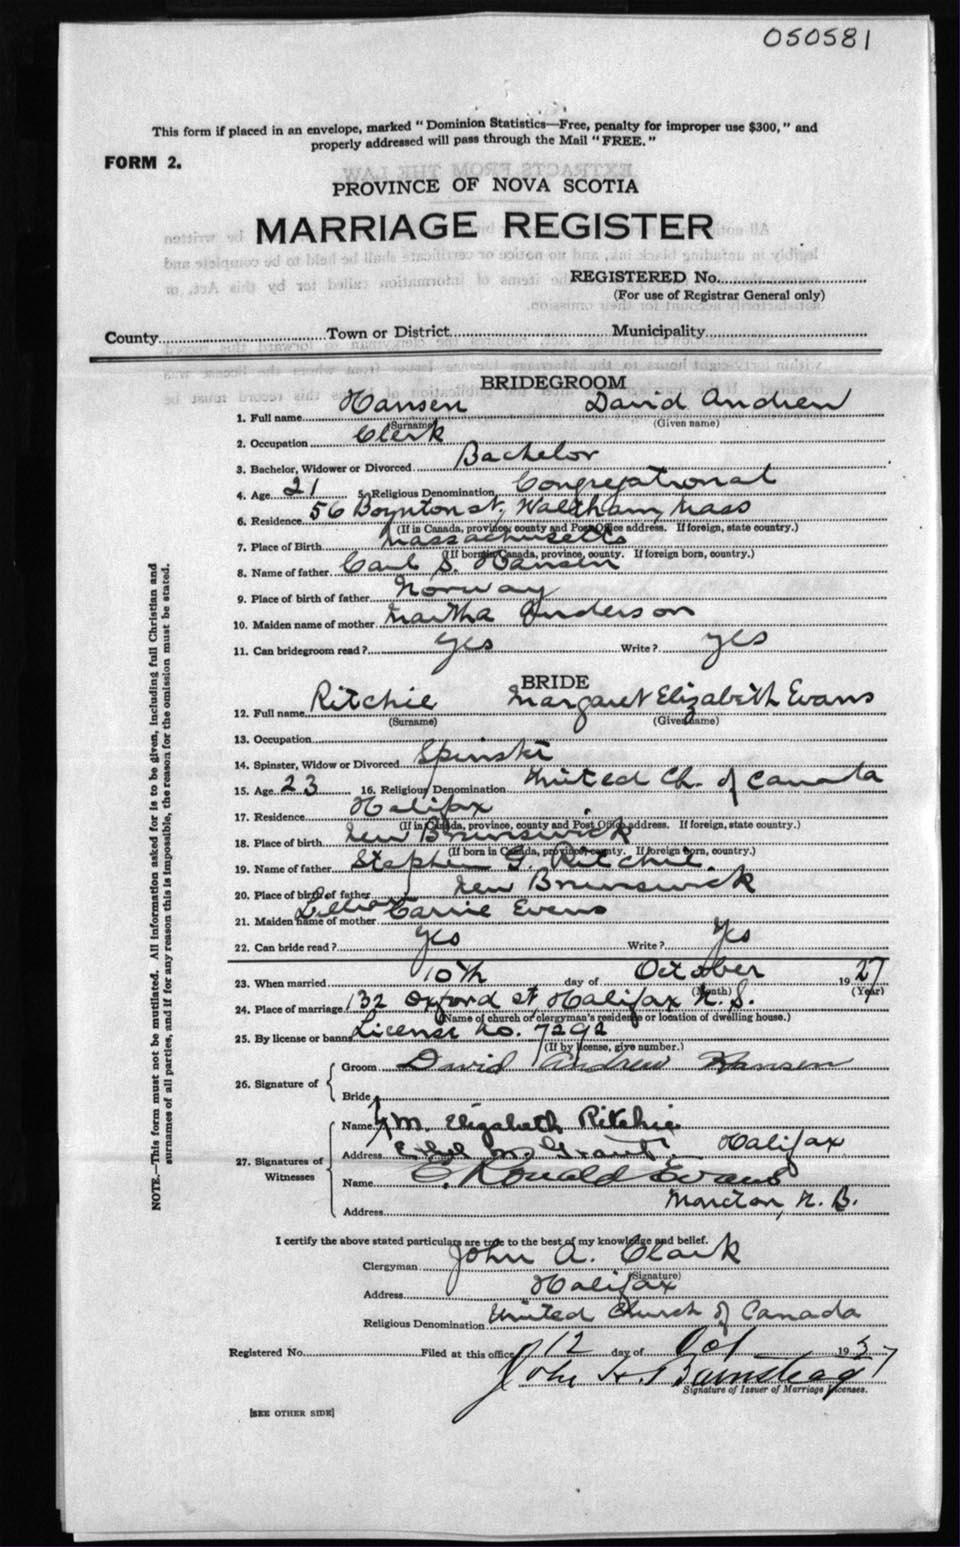 050581
This form if placed in an envelope, marked "Dominion Statistics—Free, penalty for improper use $300," and
properly addressed will pass through the Mail "FREE."
FORM 2.
PROVINCE OF NOVA SCOTIA
MARRIAGE REGISTER
REGISTERED No.
(For use of Registrar General only)
County Town or District Municipality
BRIDEGROOM
1. Full name Hansen David Andrew
(Surname) (Given name)
2. Occupation Clerk
3. Bachelor, Widower or Divorced Bachelor
4. Age 21 5. Religious Denomination Congregational
6. Residence 56 Boynton st, Waltham, Mass
(If in Canada, province, county and Post Office address. If foreign, state country.)
7. Place of Birth Massachusetts
(If born in Canada, province, county. If foreign born, country.)
8. Name of father Carl S. Hansen
9. Place of birth of father Norway
10. Maiden name of mother Martha Anderson
11. Can bridegroom read? yes Write? yes
BRIDE
12. Full name Ritchie Margaret Elizabeth Evans
(Surname) (Given name)
13. Occupation
14. Spinster, Widow or Divorced
15. Age 23 16. Religious Denomination United Ch. of Canada
17. Residence Halifax
(If in Canada, province, county and Post Office address. If foreign, state country.)
18. Place of birth New Brunswick
(If born in Canada, province, county. If foreign born, country.)
19. Name of father Stephen G. Ritchie
20. Place of birth of father New Brunswick
21. Maiden name of mother Carrie Evens
22. Can bride read? yes Write? yes
23. When married 10th day of October 1927
(Month) (Year)
24. Place of marriage 132 Oxford st Halifax N.S.
(Name of church or clergyman's residence or location of dwelling house.)
25. By license or banns License No. 7292
(If by license, give number.)
26. Signature of Groom David Andrew Hansen
Bride
27. Signatures of Witnesses Name M. Elizabeth Ritchie
Address Grant Halifax
Name C. Ronald Evans
Address Moncton, N. B.
I certify the above stated particulars are true to the best of my knowledge and belief.
Clergyman John A. Clark
(Signature)
Address Halifax
Religious Denomination United Church of Canada
Registered No. Filed at this office 12 day of Oct 19
John H.
Signature of Issuer of Marriage Licenses.
[SEE OTHER SIDE]
NOTE.—This form must not be mutilated. All information asked for is to be given, including full Christian and
surnames of all parties, and if for any reason this is impossible, the reason for the omission must be stated.